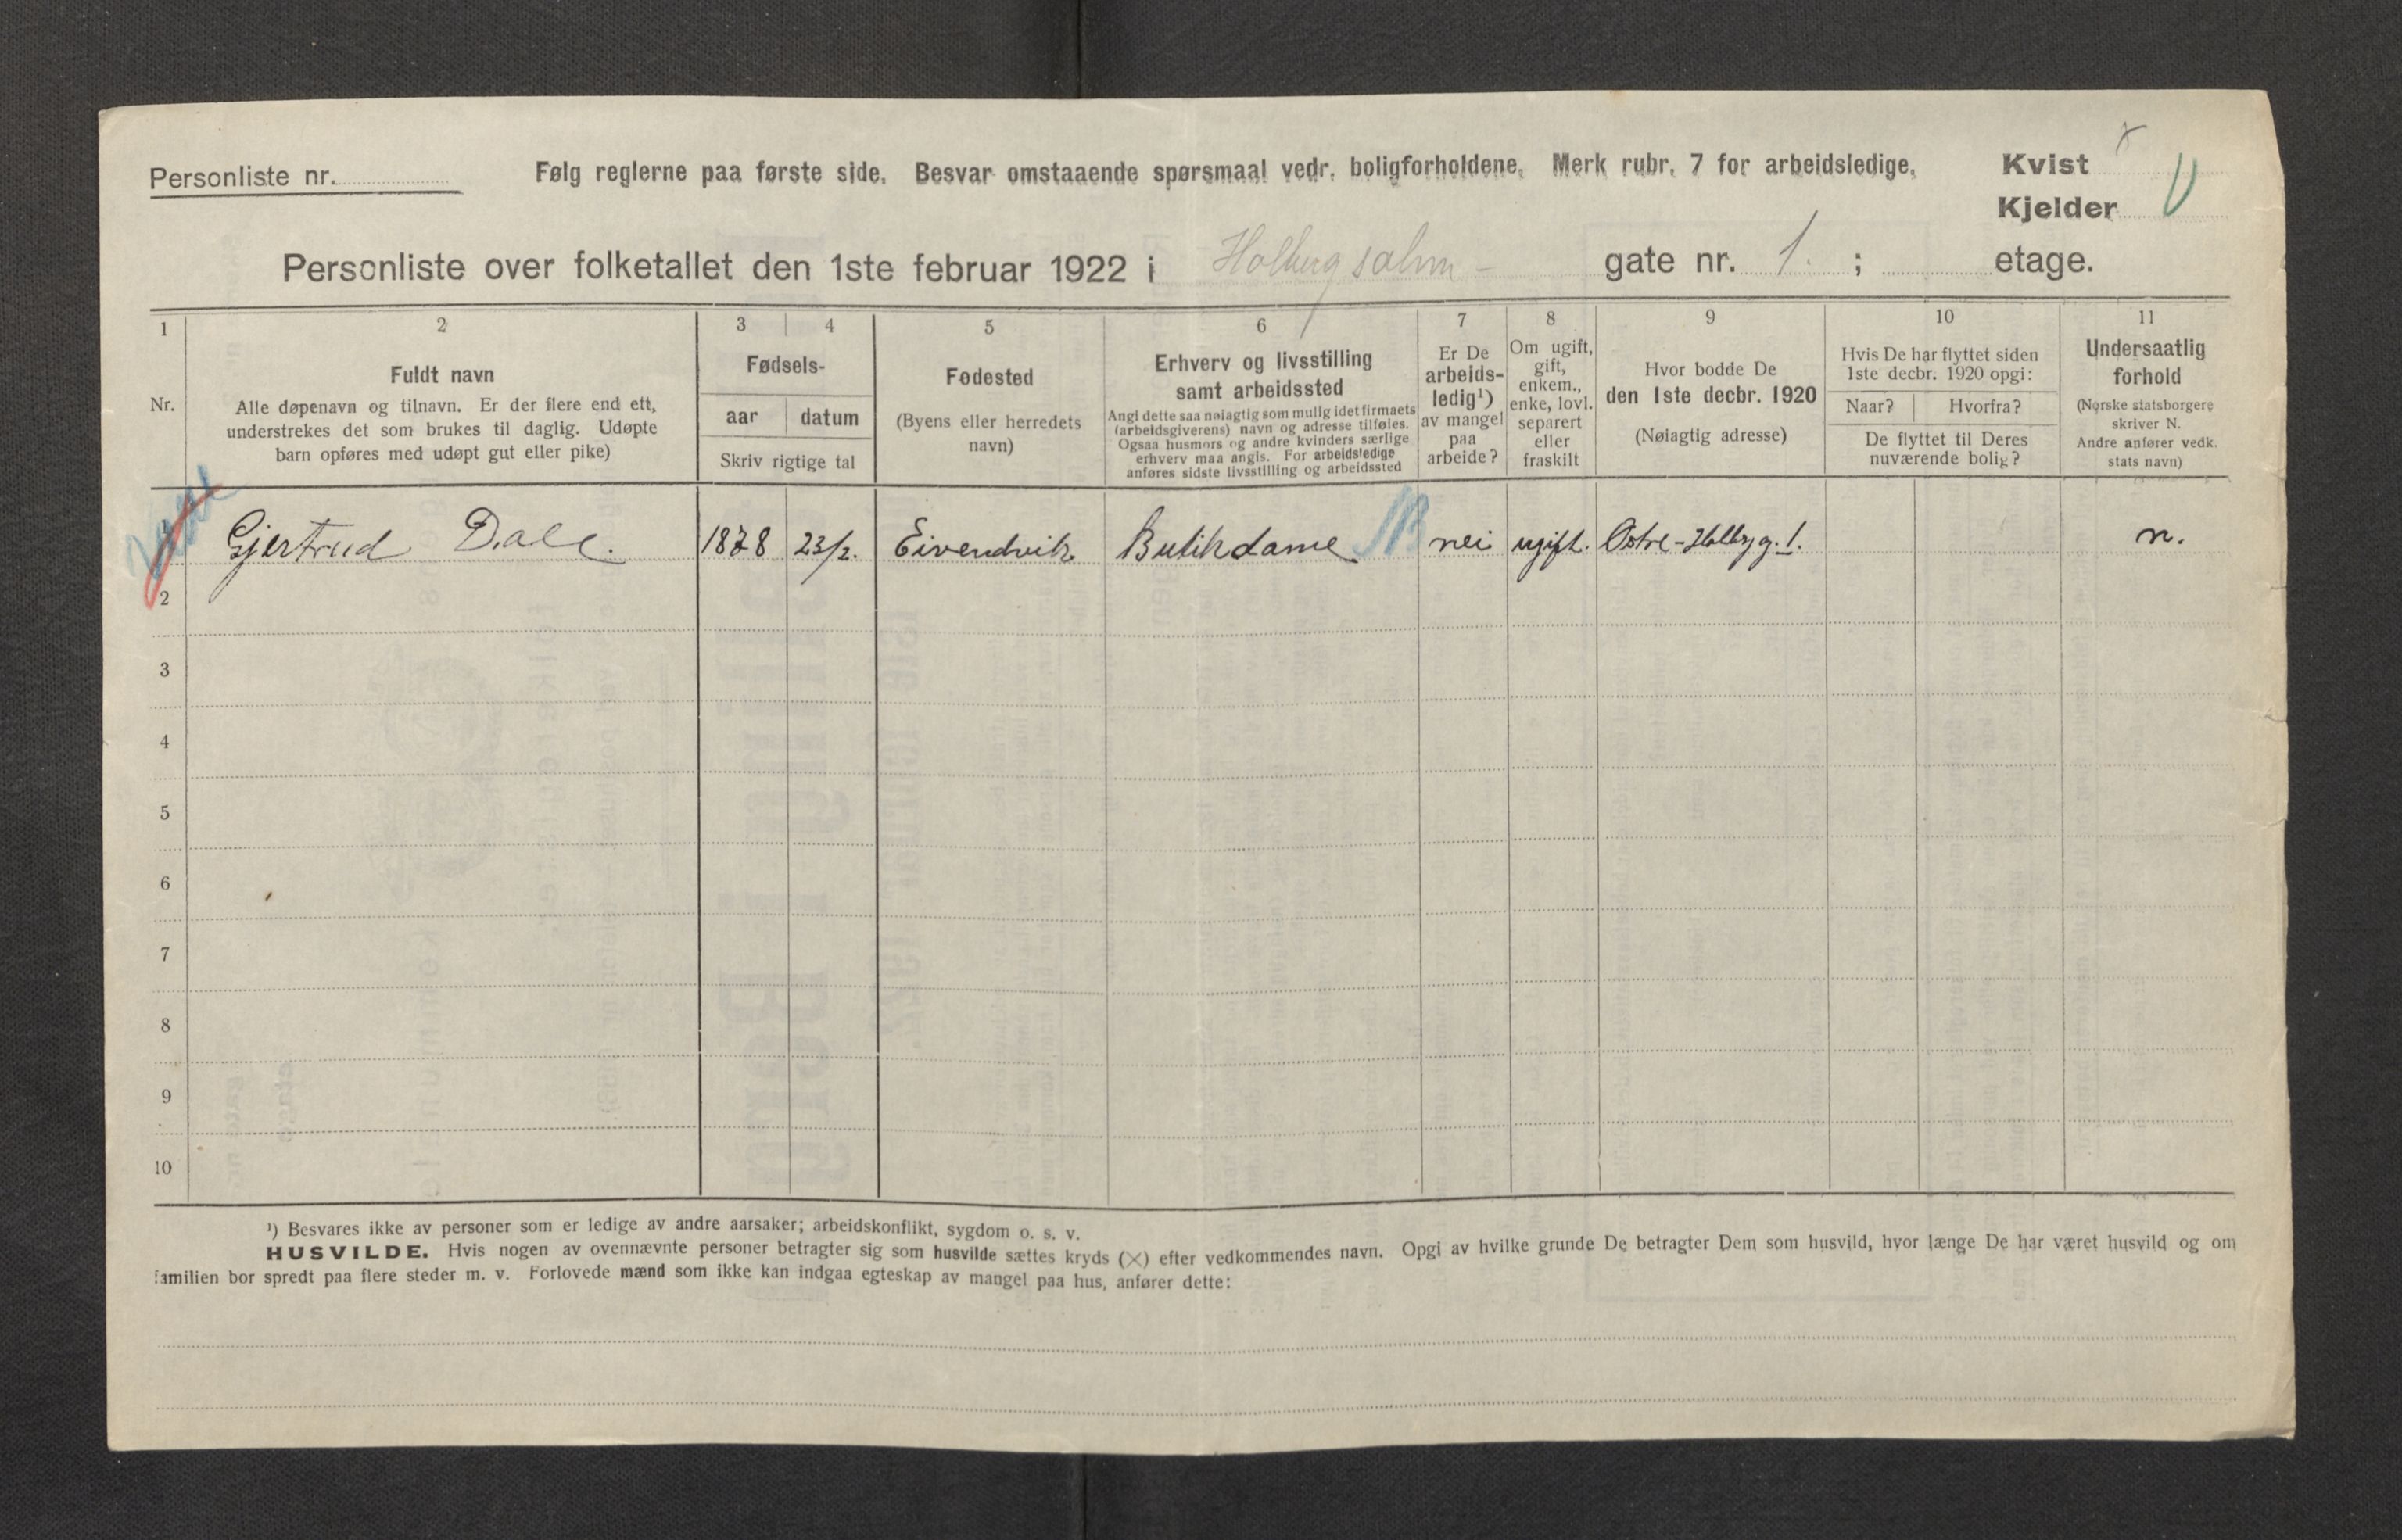 Personliste nr.
Følg reglerne paa første side. Besvar omstaaende spørsmaal vedr. boligforholdene. Merk rubr. 7 for arbeidsledige.
Kvist x
Kjelder
Personliste over folketallet den 1ste februar 1922 i Holbergsalm - gate nr. 1. ; etage.
1 2 3 4 5 6 7 8 9 10 11
Nr.
Fuldt navn
Alle døpenavn og tilnavn. Er der flere end ett,
understrekes det som brukes til daglig. Udøpte
barn opføres med udøpt gut eller pike)
Fødsels-
aar datum
Skriv rigtige tal
Fødested
(Byens eller herredets
navn)
Erhverv og livsstilling
samt arbeidssted
Angi dette saa nøiagtig som mulig idet firmaets
(arbeidsgiverens) navn og adresse tilføies.
Ogsaa husmors og andre kvinders særlige
erhverv maa angis. For arbeidsledige
anføres sidste livsstilling og arbeidssted
Er De
arbeids-
ledig¹)
av mangel
paa
arbeide?
Om ugift,
gift,
enkem.,
enke, lovl.
separert
eller
fraskilt
Hvor bodde De
den 1ste decbr. 1920
(Nøiagtig adresse)
Hvis De har flyttet siden
1ste decbr. 1920 opgi:
Naar? Hvorfra?
De flyttet til Deres
nuværende bolig?
Undersaatlig
forhold
(Norske statsborgere
skriver N.
Andre anfører vedk.
stats navn)
1 Gjertrud Dale. 1878 23/2. Eivendvik. Butikdame nei ugift. Østre-Holbg g. 1. n.
2
3
4
5
6
7
8
9
10
¹) Besvares ikke av personer som er ledige av andre aarsaker; arbeidskonflikt, sygdom o. s. v.
HUSVILDE. Hvis nogen av ovennævnte personer betragter sig som husvilde sættes kryds (×) efter vedkommendes navn. Opgi av hvilke grunde De betragter Dem som husvild, hvor længe De har været husvild og om
familien bor spredt paa flere steder m. v. Forlovede mænd som ikke kan indgaa egteskap av mangel paa hus, anfører dette: